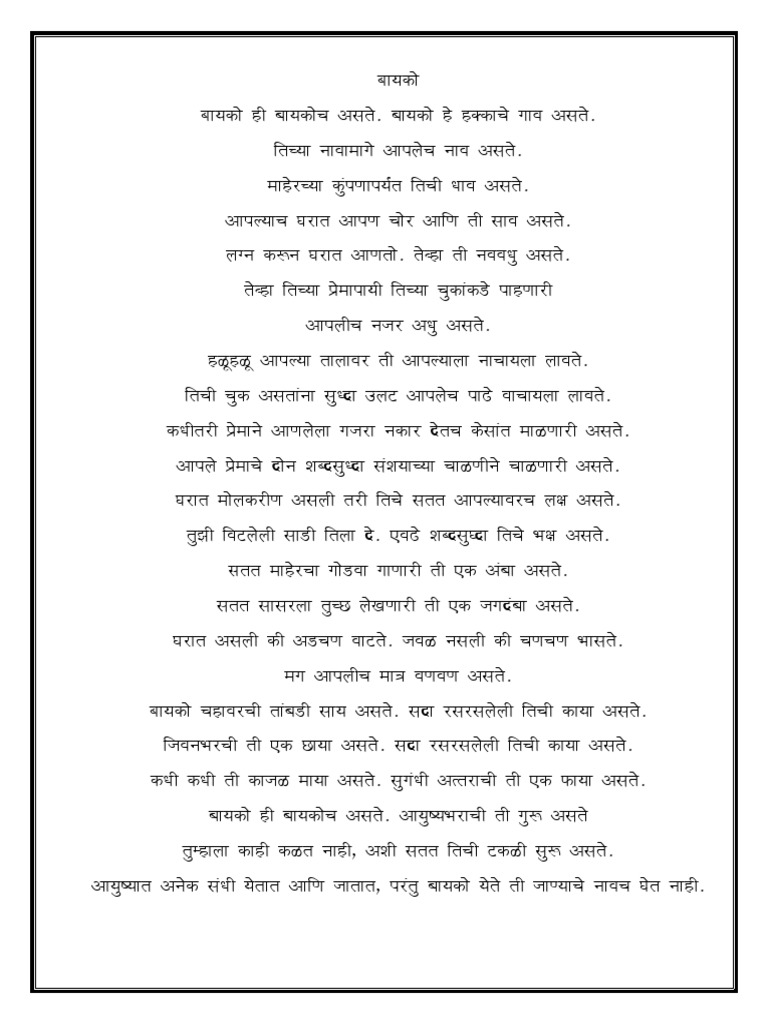 बायको
बायको ही बायकोच असते. बायको हे हक्काचे गाव असते.
तिच्या नावामागे आपलेच नाव असते.
माहेरच्या कुंपणापर्यंत तिची धाव असते.
आपल्याच घरात आपण चोर आणि ती साव असते.
लग्न करून घरात आणतो. तेव्हा ती नववधु असते.
तेव्हा तिच्या प्रेमापायी तिच्या चुकांकडे पाहणारी
आपलीच नजर अधु असते.
हळूहळू आपल्या तालावर ती आपल्याला नाचायला लावते.
तिची चुक असतांना सुध्दा उलट आपलेच पाढे वाचायला लावते.
कधीतरी प्रेमाने आणलेला गजरा नकार देतच केसांत माळणारी असते.
आपले प्रेमाचे दोन शब्दसुध्दा संशयाच्या चाळणीने चाळणारी असते.
घरात मोलकरीण असली तरी तिचे सतत आपल्यावरच लक्ष असते.
तुझी विटलेली साडी तिला दे. एवढे शब्दसुघ्दा तिचे भक्ष असते.
सतत माहेरचा गोडवा गाणारी ती एक अंबा असते.
सतत सासरला तुच्छ लेखणारी ती एक जगदंबा असते.
घरात असली की अडचण वाटते. जवळ नसली की चणचण भासते.
मग आपलीच मात्र वणवण असते.
बायको चहावरची तांबडी साय असते. सदा रसरसलेली तिची काया असते.
जिवनभरची ती एक छाया असते. सदा रसरसलेली तिची काया असते.
कधी कधी ती काजळ माया असते. सुगंधी अत्तराची ती एक फाया असते.
बायको ही बायकोच असते. आयुष्यभराची ती गुरू असते
तुम्हाला काही कळत नाही, अशी सतत तिची टकळी सुरू असते.
आयुष्यात अनेक संधी येतात आणि जातात, परंतु बायको येते ती जाण्याचे नावच घेत नाही.